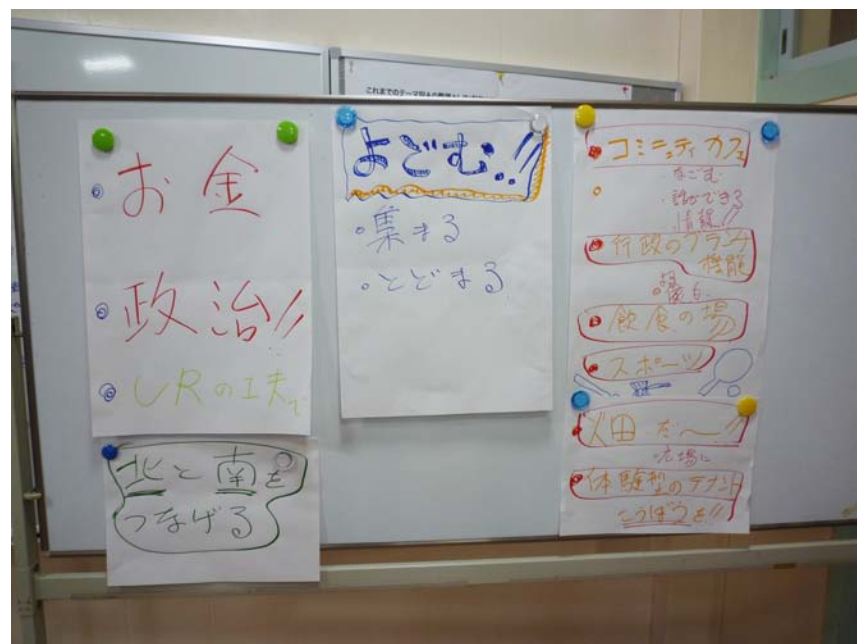 これまでのテーマ
お金
政治!!
URの工夫で
北と南を
つなげる
よどむ!!
・集まる
・とどまる
コミニュティカフェ
・よどむ
・誰ができる
情報!!
行政のブランチ
機能
飲食の場
スポーツ
畑だ～!!
・広場に
体験型のテナント
こうぼうを!!